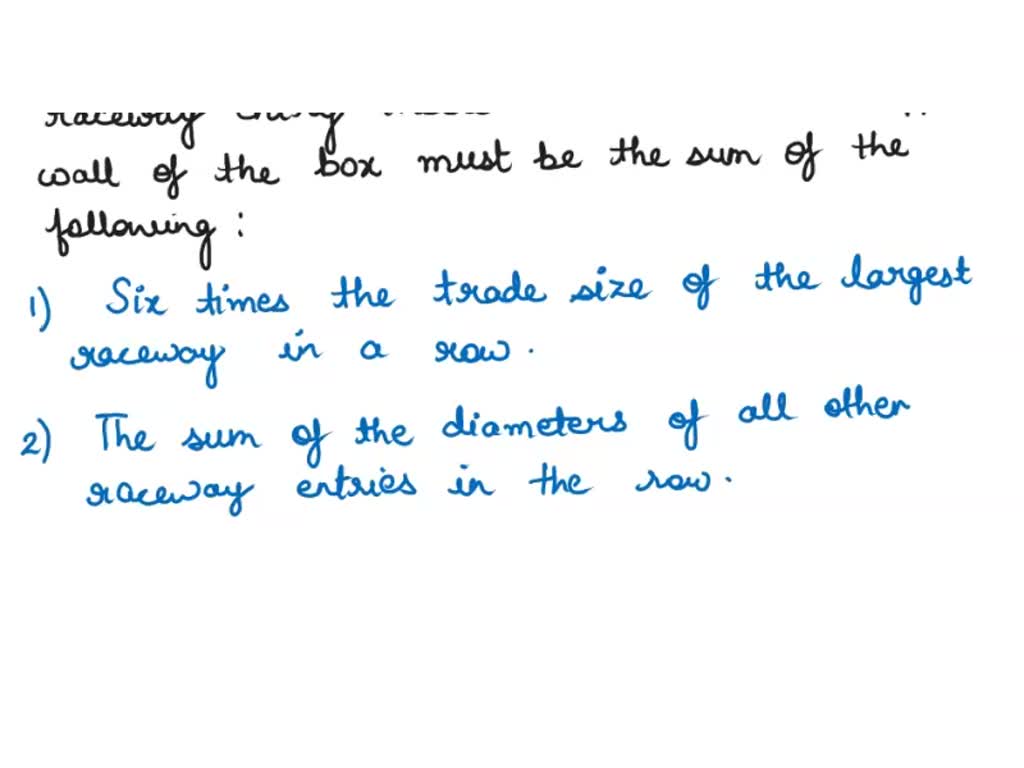 raceway
wall of the box must be the sum of the
following:
1) Six times the trade size of the largest
raceway in a row.
2) The sum of the diameters of all other
raceway entries in the row.